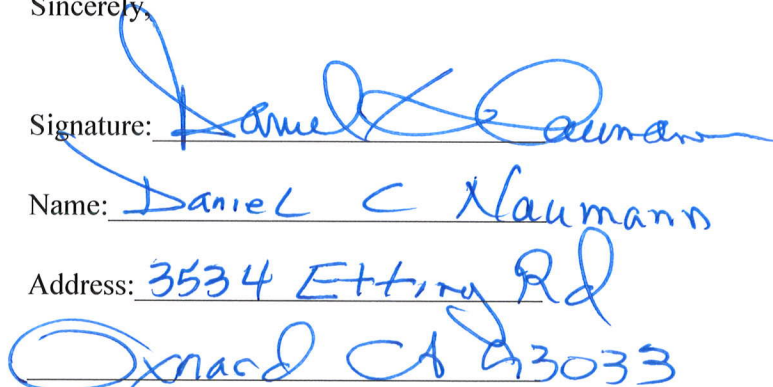 Sincerely,
Signature: Daniel C Naumann
Name: Daniel C Naumann
Address: 3534 Etting Rd
Oxnard CA 93033